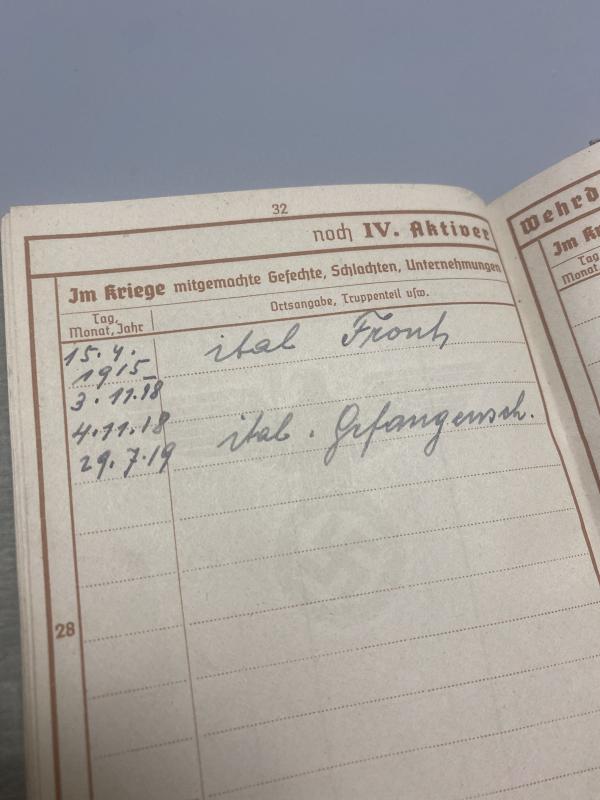 32
noch IV. Aktiver
Wehrd
Im Kriege mitgemachte Gefechte, Schlachten, Unternehmungen
Im Kr
Tag,
Monat, Jahr
Ortsangabe, Truppenteil usw.
Tag
Monat
15.4.
1915
ital Front
3.11.18
4.11.18
29.7.19
ital. Gefangensch.
28